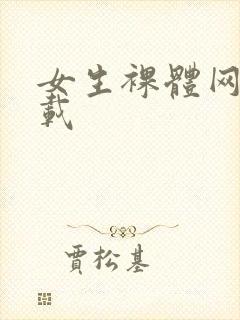 女生裸體网
載
賈松基